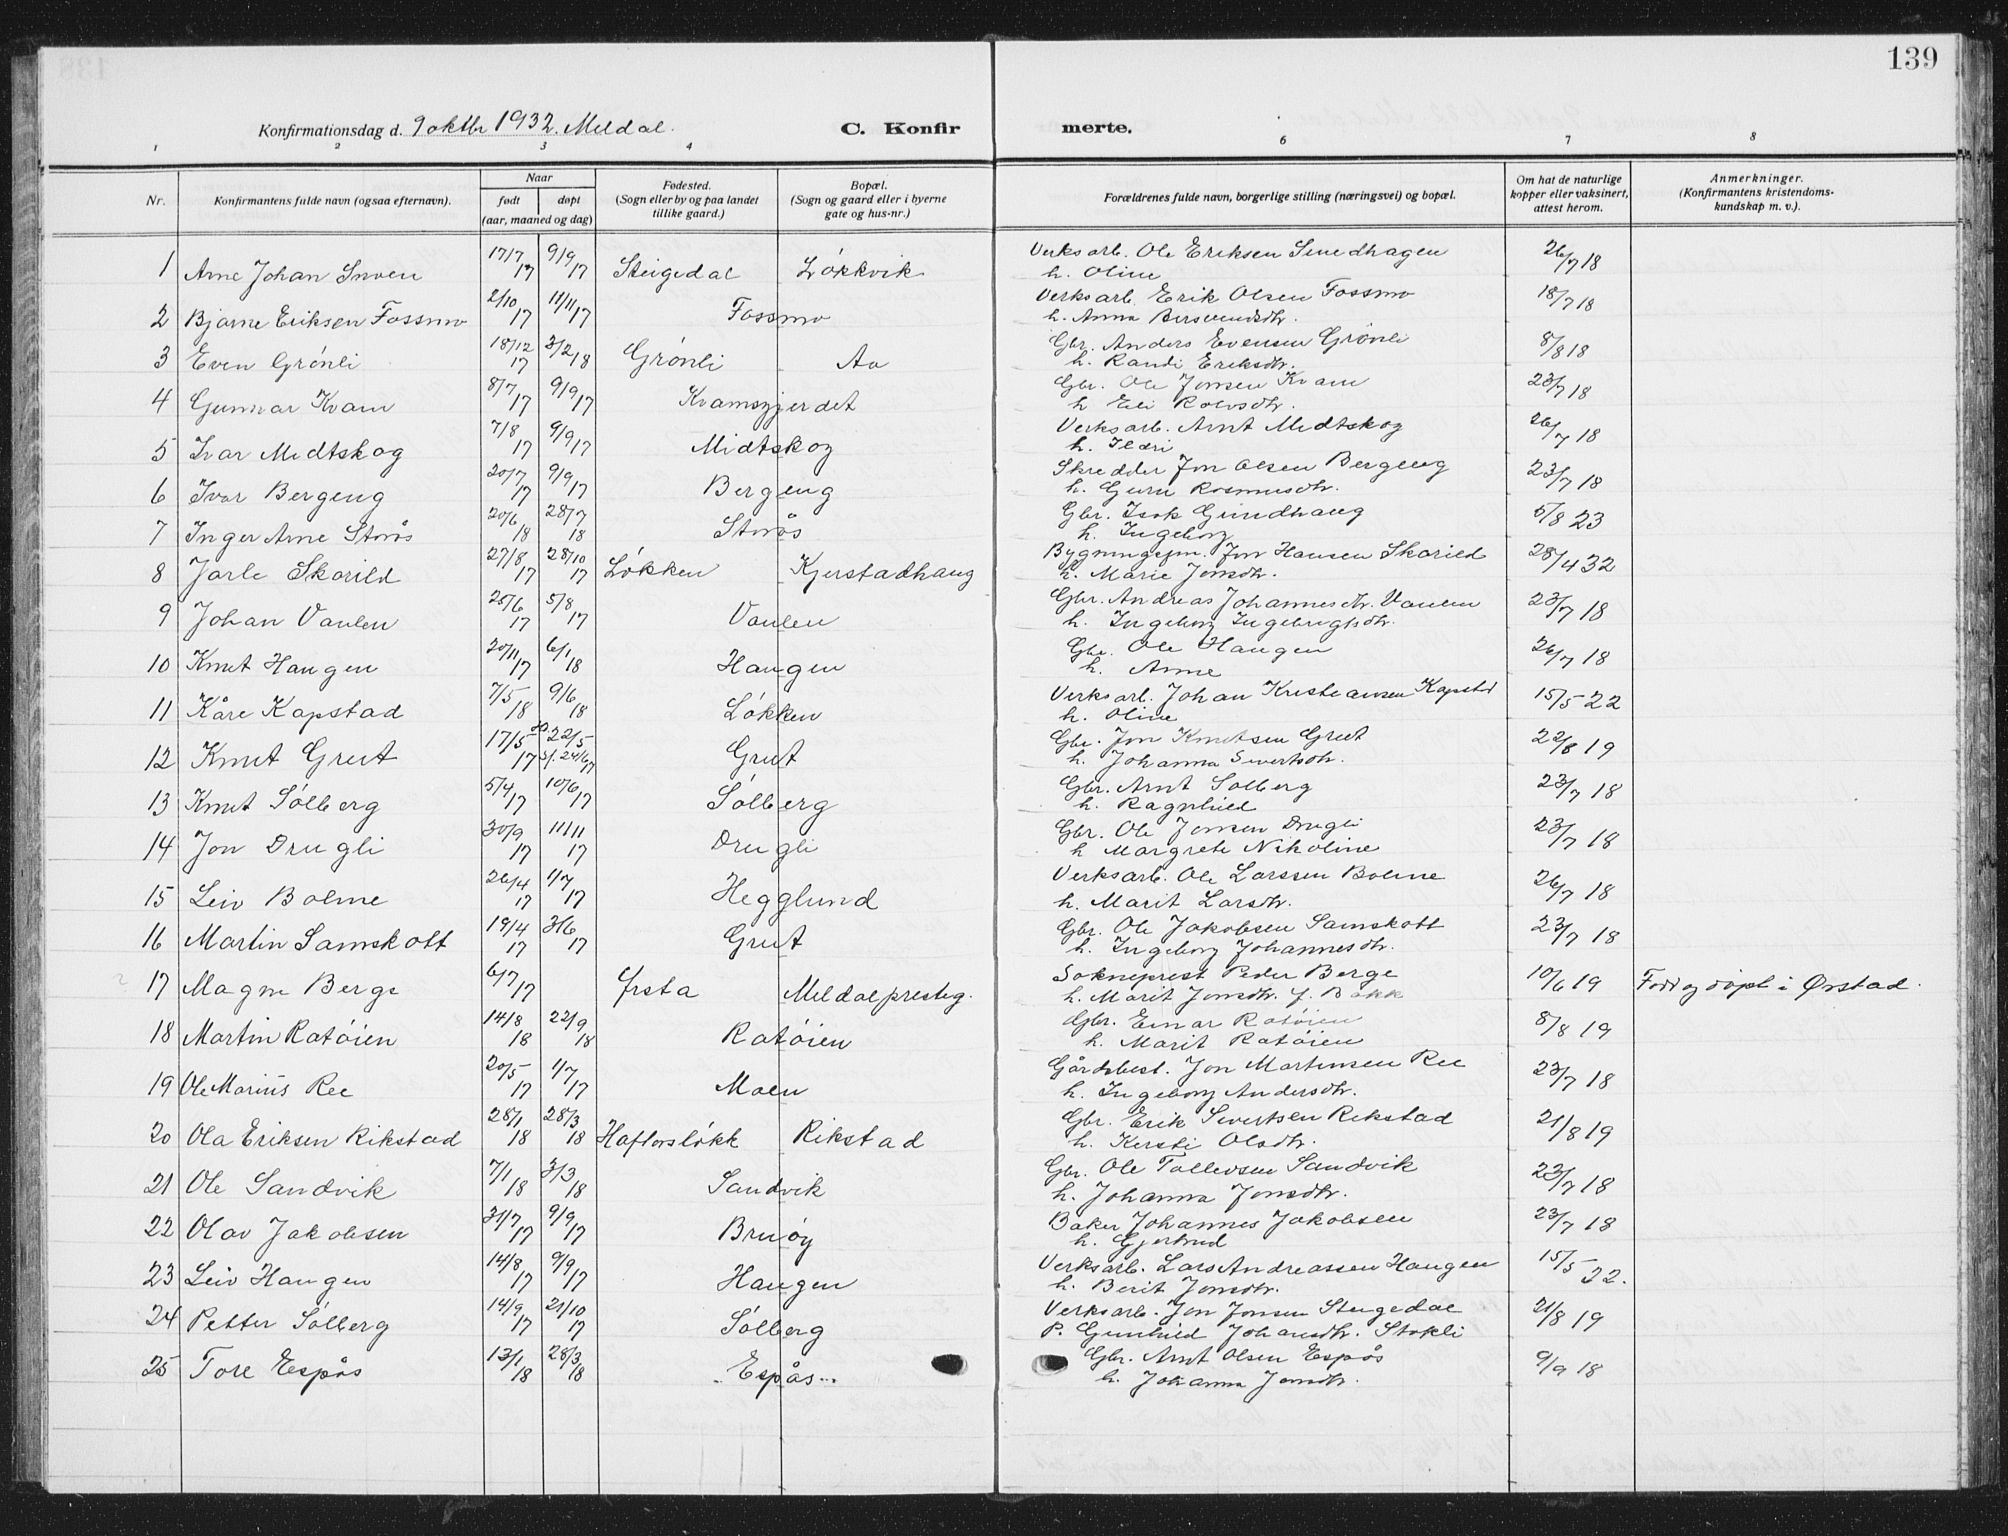 139
Konfirmationsdag d. 9 oktbr 1932. Meldal. C. Konfirmerte.
1 2 3 4 6 7 8
Nr. Konfirmantens fulde navn (ogsaa efternavn). Naar født døpt (aar, maaned og dag) Fødested. (Sogn eller by og paa landet tillike gaard.) Bopæl. (Sogn og gaard eller i byerne gate og hus-nr.) Forældrenes fulde navn, borgerlige stilling (næringsvei) og bopæl. Om hat de naturlige kopper eller vaksinert, attest herom. Anmerkninger. (Konfirmantens kristendomskundskap m. v.).
1 Arne Johan 17/7 17 9/9 17 Steigedal Løkkvik Verksarb. Ole Eriksen Smedhagen 26/7 18
h. Oline
2 Bjarne Eriksen Fossmo 2/10 17 11/11 17 Fossmo Verksarb. Erik Olsen Fossmo 18/7 18
h. Anna
3 Even Grønli 18/12 17 3/2 18 Grønli Aa Gbr. Anders Evensen Grønli 8/8 18
h. Randi Eriksdtr.
4 Gunnar Kvam 8/7 17 9/9 17 Kvamsgjerdet Gbr. Ole Jonsen Kvam 23/7 18
h. Eli
5 Ivar Midtskog 7/8 17 9/9 17 Midtskog Verksarb. Arnt Midtskog 26/7 18
h. Ildri
6 Ivar Bergeng 20/7 17 9/9 17 Bergeng Skredder Jon Olsen Bergeng 23/7 18
h. Guru Rasmusdtr.
7 Inger Arne Storås 20/6 18 28/7 18 Storås Gbr. Isak Grindhaug 5/8 23
h. Ingeborg
8 Jarle Skarild 27/8 17 28/10 17 Løkken Kjerstadhaug Bygningssjm. Jon Hansen Skarild 28/4 32
h. Marie Jonsdtr.
9 Johan Vaulen 25/6 17 5/8 17 Vaulen Gbr. Andreas Johannesdtr. Vaulen 23/7 18
h. Ingeborg Ingebrigtsdtr.
10 Knut Haugen 20/11 17 6/1 18 Haugen Gbr. Ole Haugen 26/7 18
h. Anne
11 Kåre Kapstad 7/5 18 9/6 18 Løkken Verksarb. Johan Kristiansen Kapstad 15/5 22
h. Oline
12 Knut Grut 17/5 17 22/5 24/6 17 Grut Gbr. Jon Knutsen Grut 22/8 19
h. Johanna Sivertsdtr.
13 Knut Sølberg 5/4 17 10/6 17 Sølberg Gbr. Arnt Solberg 23/7 18
h. Ragnhild
14 Jon Drugli 30/9 17 11/11 17 Drugli Gbr. Ole Jonsen Drugli 23/7 18
h. Margrete Nikoline
15 Leiv Bolme 26/4 17 1/7 17 Hegglund Verksarb. Ole Larssen Bolme 26/7 18
h. Marit Larsdtr.
16 Martin Samskott 19/4 17 3/6 17 Grut Gbr. Ole Jakobsen Samskott 23/7 18
h. Ingeborg Johannesdtr.
17 Magne Berge 6/7 17 Ørsta Meldal presteg. Sokneprest Peder Berge 10/6 19 Født og døpt i Ørstad.
h. Marit Jonsdtr. f. Bakk
18 Martin Ratøien 14/8 18 22/9 18 Ratøien Gbr. Einar Ratøien 8/8 19
h. Marit Ratøien
19 Ole Marius Ree 20/5 17 1/7 17 Moen Gårdsbest. Jon Martinsen Ree 23/7 18
h. Ingeborg Andersdtr.
20 Ola Eriksen Rikstad 28/1 18 28/3 18 Haftorsløkk Rikstad Gbr. Erik Sivertsen Rikstad 21/8 19
h. Kersti Olsdtr.
21 Ole Sandvik 7/1 18 3/3 18 Sandvik Gbr. Ole Tollevsen Sandvik 23/7 18
h. Johanna Jonsdtr.
22 Olav Jakobsen 31/7 17 9/9 17 Bruøy Baker Johannes Jakobsen 23/7 18
h. Gjertrud
23 Leiv Haugen 14/8 17 9/9 17 Haugen Verksarb. Lars Andreassen Haugen 15/5 22.
h. Berit Jonsdtr.
24 Petter Sølberg 14/9 17 21/10 17 Sølberg Verksarb. Jon Jonsen Steigedal 21/8 19
P. Gunhild Johansdtr. Stokli
25 Tore Espås 13/1 18 28/3 18 Espås Gbr. Arnt Olsen Espås 9/9 18
h. Johanna Jonsdtr.